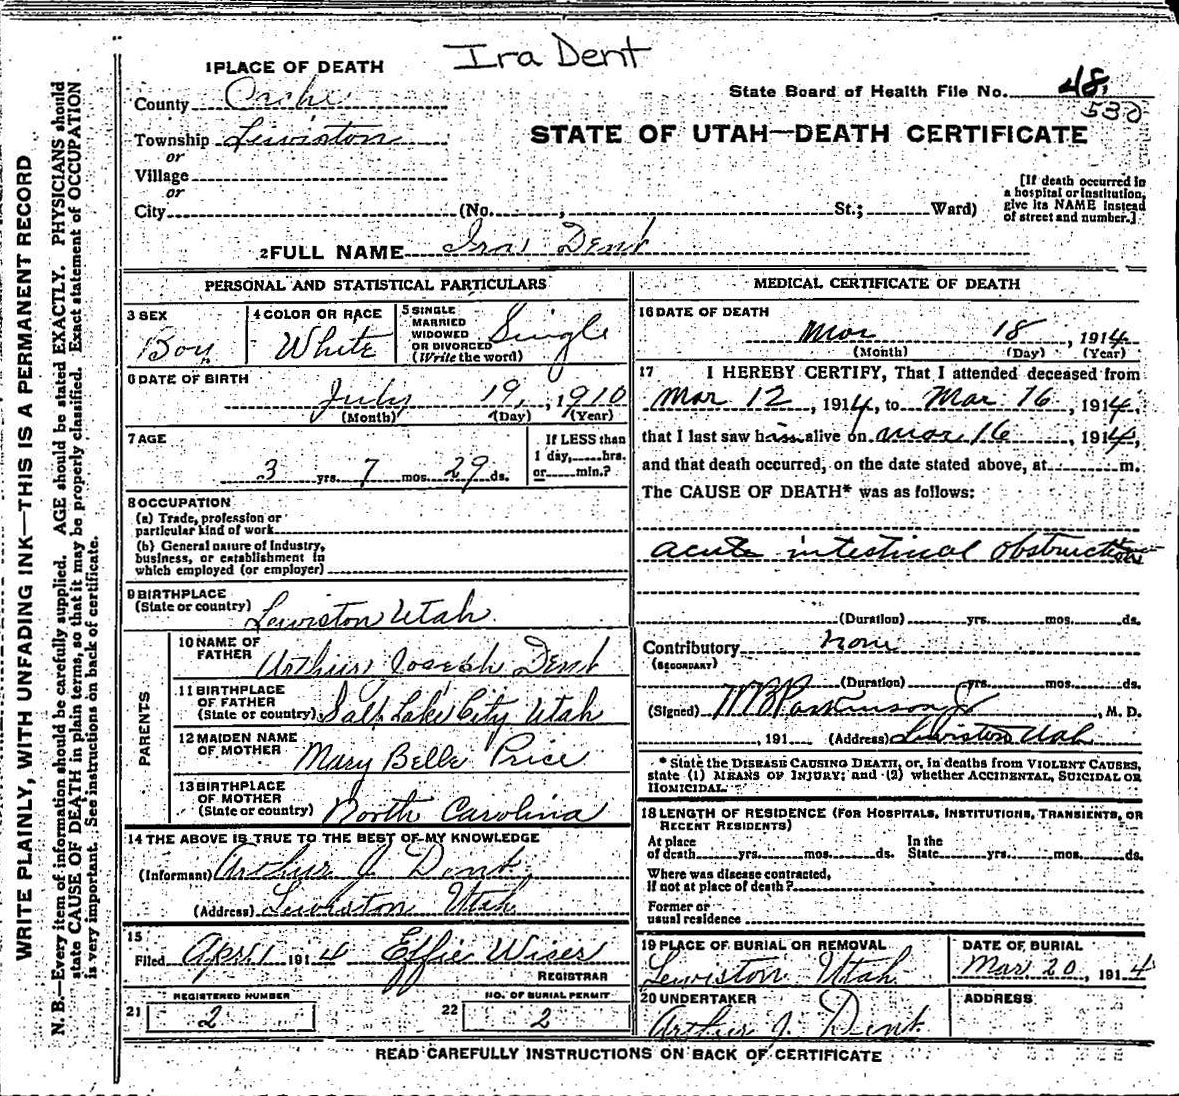 Ira Dent
1 PLACE OF DEATH
County Cache
State Board of Health File No. 48.
530
Township Lewiston
STATE OF UTAH—DEATH CERTIFICATE
or
Village
or
City (No. , St.; Ward)
[If death occurred in
a hospital or institution,
give its NAME instead
of street and number.]
2 FULL NAME Ira Dent
WRITE PLAINLY, WITH UNFADING INK—THIS IS A PERMANENT RECORD
N. B.—Every item of information should be carefully supplied. AGE should be stated EXACTLY. PHYSICIANS should
state CAUSE OF DEATH in plain terms, so that it may be properly classified. Exact statement of OCCUPATION
is very important. See instructions on back of certificate.
PERSONAL AND STATISTICAL PARTICULARS
3 SEX
Boy
4 COLOR OR RACE
White
5 SINGLE
MARRIED
WIDOWED
OR DIVORCED
(Write the word)
Single
6 DATE OF BIRTH
July 19, 1910
(Month) (Day) (Year)
7 AGE
3 yrs. 7 mos. 29 ds.
If LESS than
1 day, hrs.
or min.?
8 OCCUPATION
(a) Trade, profession or
particular kind of work
(b) General nature of industry,
business, or establishment in
which employed (or employer)
9 BIRTHPLACE
(State or country) Lewiston Utah
PARENTS
10 NAME OF
FATHER Arthur Joseph Dent
11 BIRTHPLACE
OF FATHER
(State or country) Salt Lake City Utah
12 MAIDEN NAME
OF MOTHER Mary Belle Price
13 BIRTHPLACE
OF MOTHER
(State or country) North Carolina
14 THE ABOVE IS TRUE TO THE BEST OF MY KNOWLEDGE
(Informant) Arthur J. Dent
(Address) Lewiston Utah
15
Filed Apr. 1 1914 Effie Wiser
REGISTRAR
REGISTERED NUMBER
21 2
NO. OF BURIAL PERMIT
22 2
MEDICAL CERTIFICATE OF DEATH
16 DATE OF DEATH
Mar 18, 1914
(Month) (Day) (Year)
17 I HEREBY CERTIFY, That I attended deceased from
Mar 12, 1914, to Mar. 16, 1914,
that I last saw him alive on Mar. 16, 1914,
and that death occurred, on the date stated above, at m.
The CAUSE OF DEATH* was as follows:
acute intestinal obstruction
(Duration) yrs. mos. ds.
Contributory none
(SECONDARY)
(Duration) yrs. mos. ds.
(Signed) W B Parkinson Jr, M. D.
, 191 (Address) Lewiston Utah
* State the DISEASE CAUSING DEATH, or, in deaths from VIOLENT CAUSES,
state (1) MEANS OF INJURY; and (2) whether ACCIDENTAL, SUICIDAL OR
HOMICIDAL.
18 LENGTH OF RESIDENCE (FOR HOSPITALS, INSTITUTIONS, TRANSIENTS, OR
RECENT RESIDENTS)
At place
of death yrs. mos. ds.
In the
State yrs. mos. ds.
Where was disease contracted,
if not at place of death?
Former or
usual residence
19 PLACE OF BURIAL OR REMOVAL
Lewiston Utah
DATE OF BURIAL
Mar. 20, 1914
20 UNDERTAKER
Arthur J. Dent
ADDRESS
READ CAREFULLY INSTRUCTIONS ON BACK OF CERTIFICATE